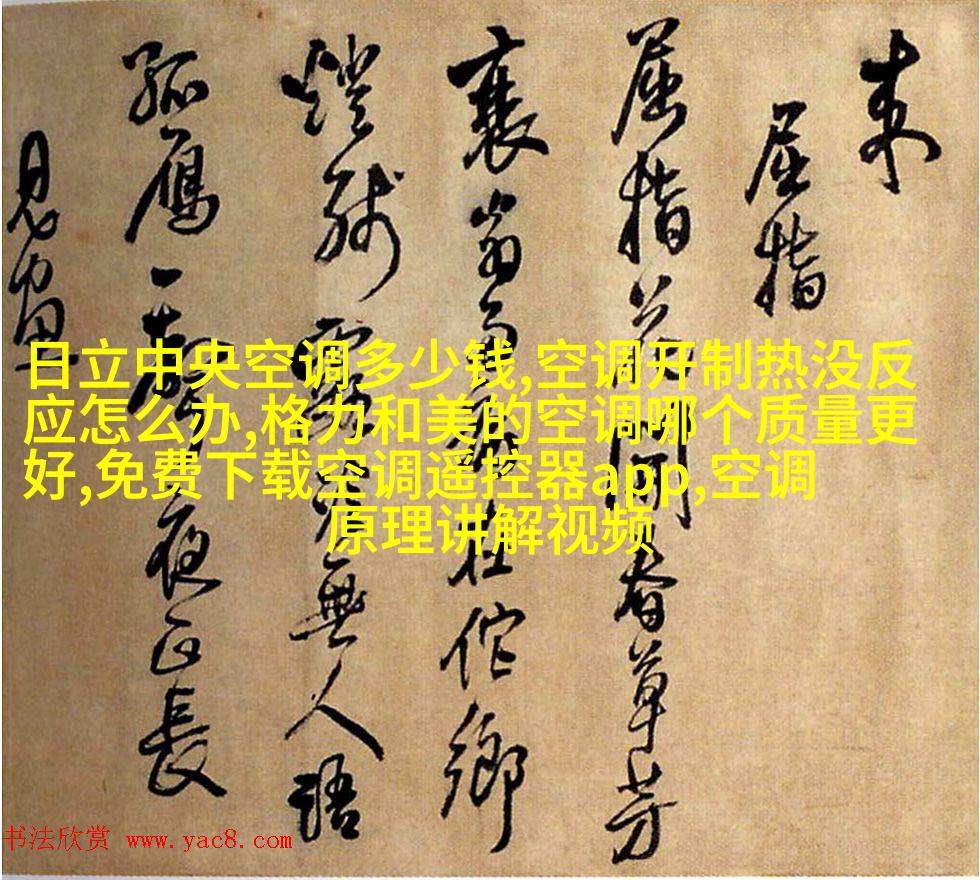 来
屈指
屈指花開春草芳
衰翁多病在佗鄉
燈殘露冷無人語
孤雁一聲夜正長
日立中央空调多少钱,空调开制热没反
应怎么办,格力和美的空调哪个质量更
好,免费下载空调遥控器app,空调
原理讲解视频
书法欣赏 www.yac8.com